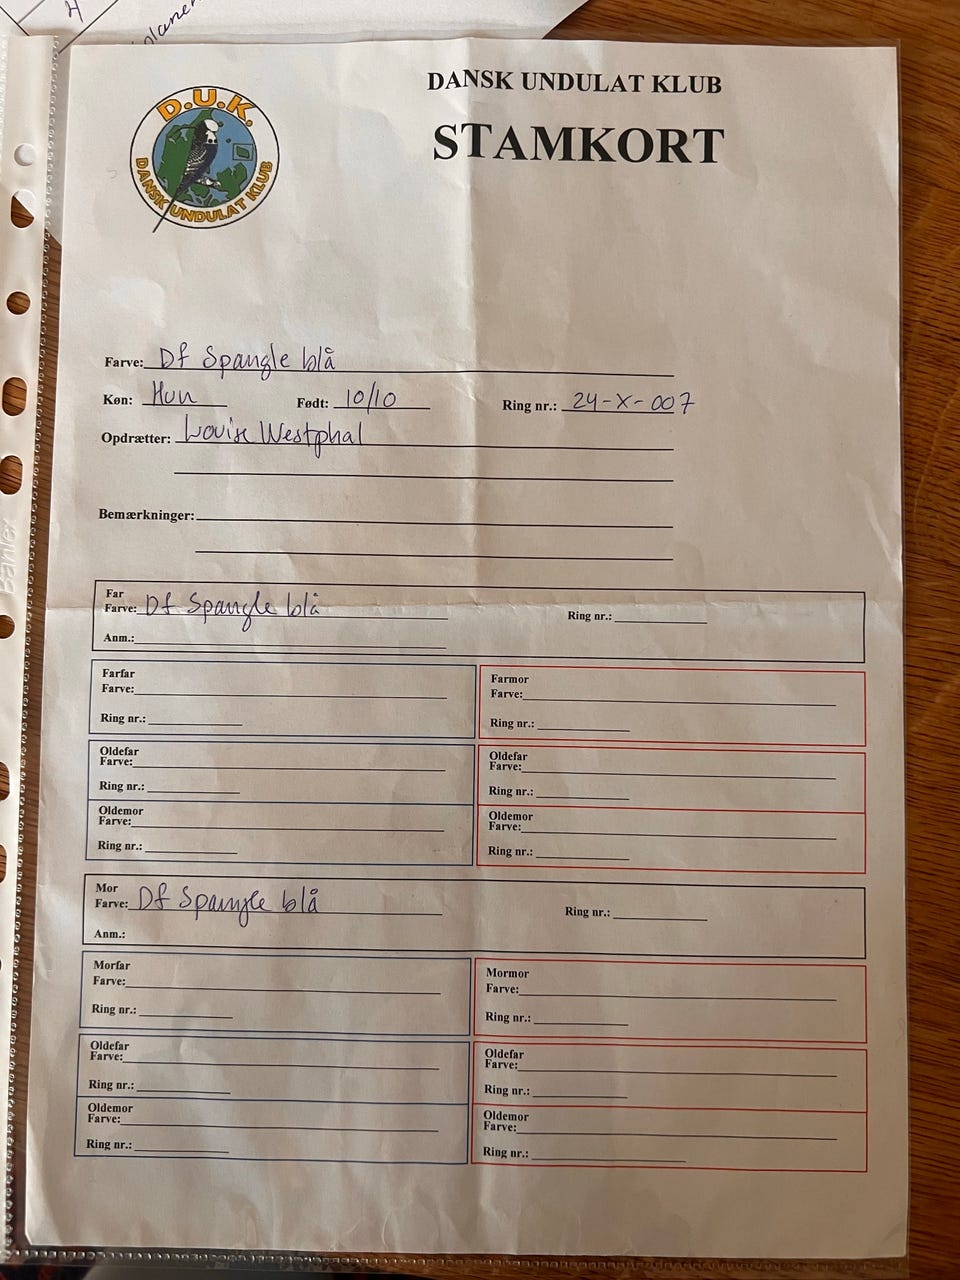 4
D.U.K.
DANSK UNDULAT KLUB
DANSK UNDULAT KLUB
STAMKORT
Farve: Df Spangle blå
Køn: Hun Født: 10/10 Ring nr.: 24-X-007
Opdrætter: Louise Westphal
Bemærkninger:
Far
Farve: Df Spangle blå Ring nr.:
Anm.:
Farfar Farmor
Farve: Farve:
Ring nr.: Ring nr.:
Oldefar Oldefar
Farve: Farve:
Ring nr.: Ring nr.:
Oldemor Oldemor
Farve: Farve:
Ring nr.: Ring nr.:
Mor
Farve: Df Spangle blå Ring nr.:
Anm.:
Morfar Mormor
Farve: Farve:
Ring nr.: Ring nr.:
Oldefar Oldefar
Farve: Farve:
Ring nr.: Ring nr.:
Oldemor Oldemor
Farve: Farve:
Ring nr.: Ring nr.:
Bantex